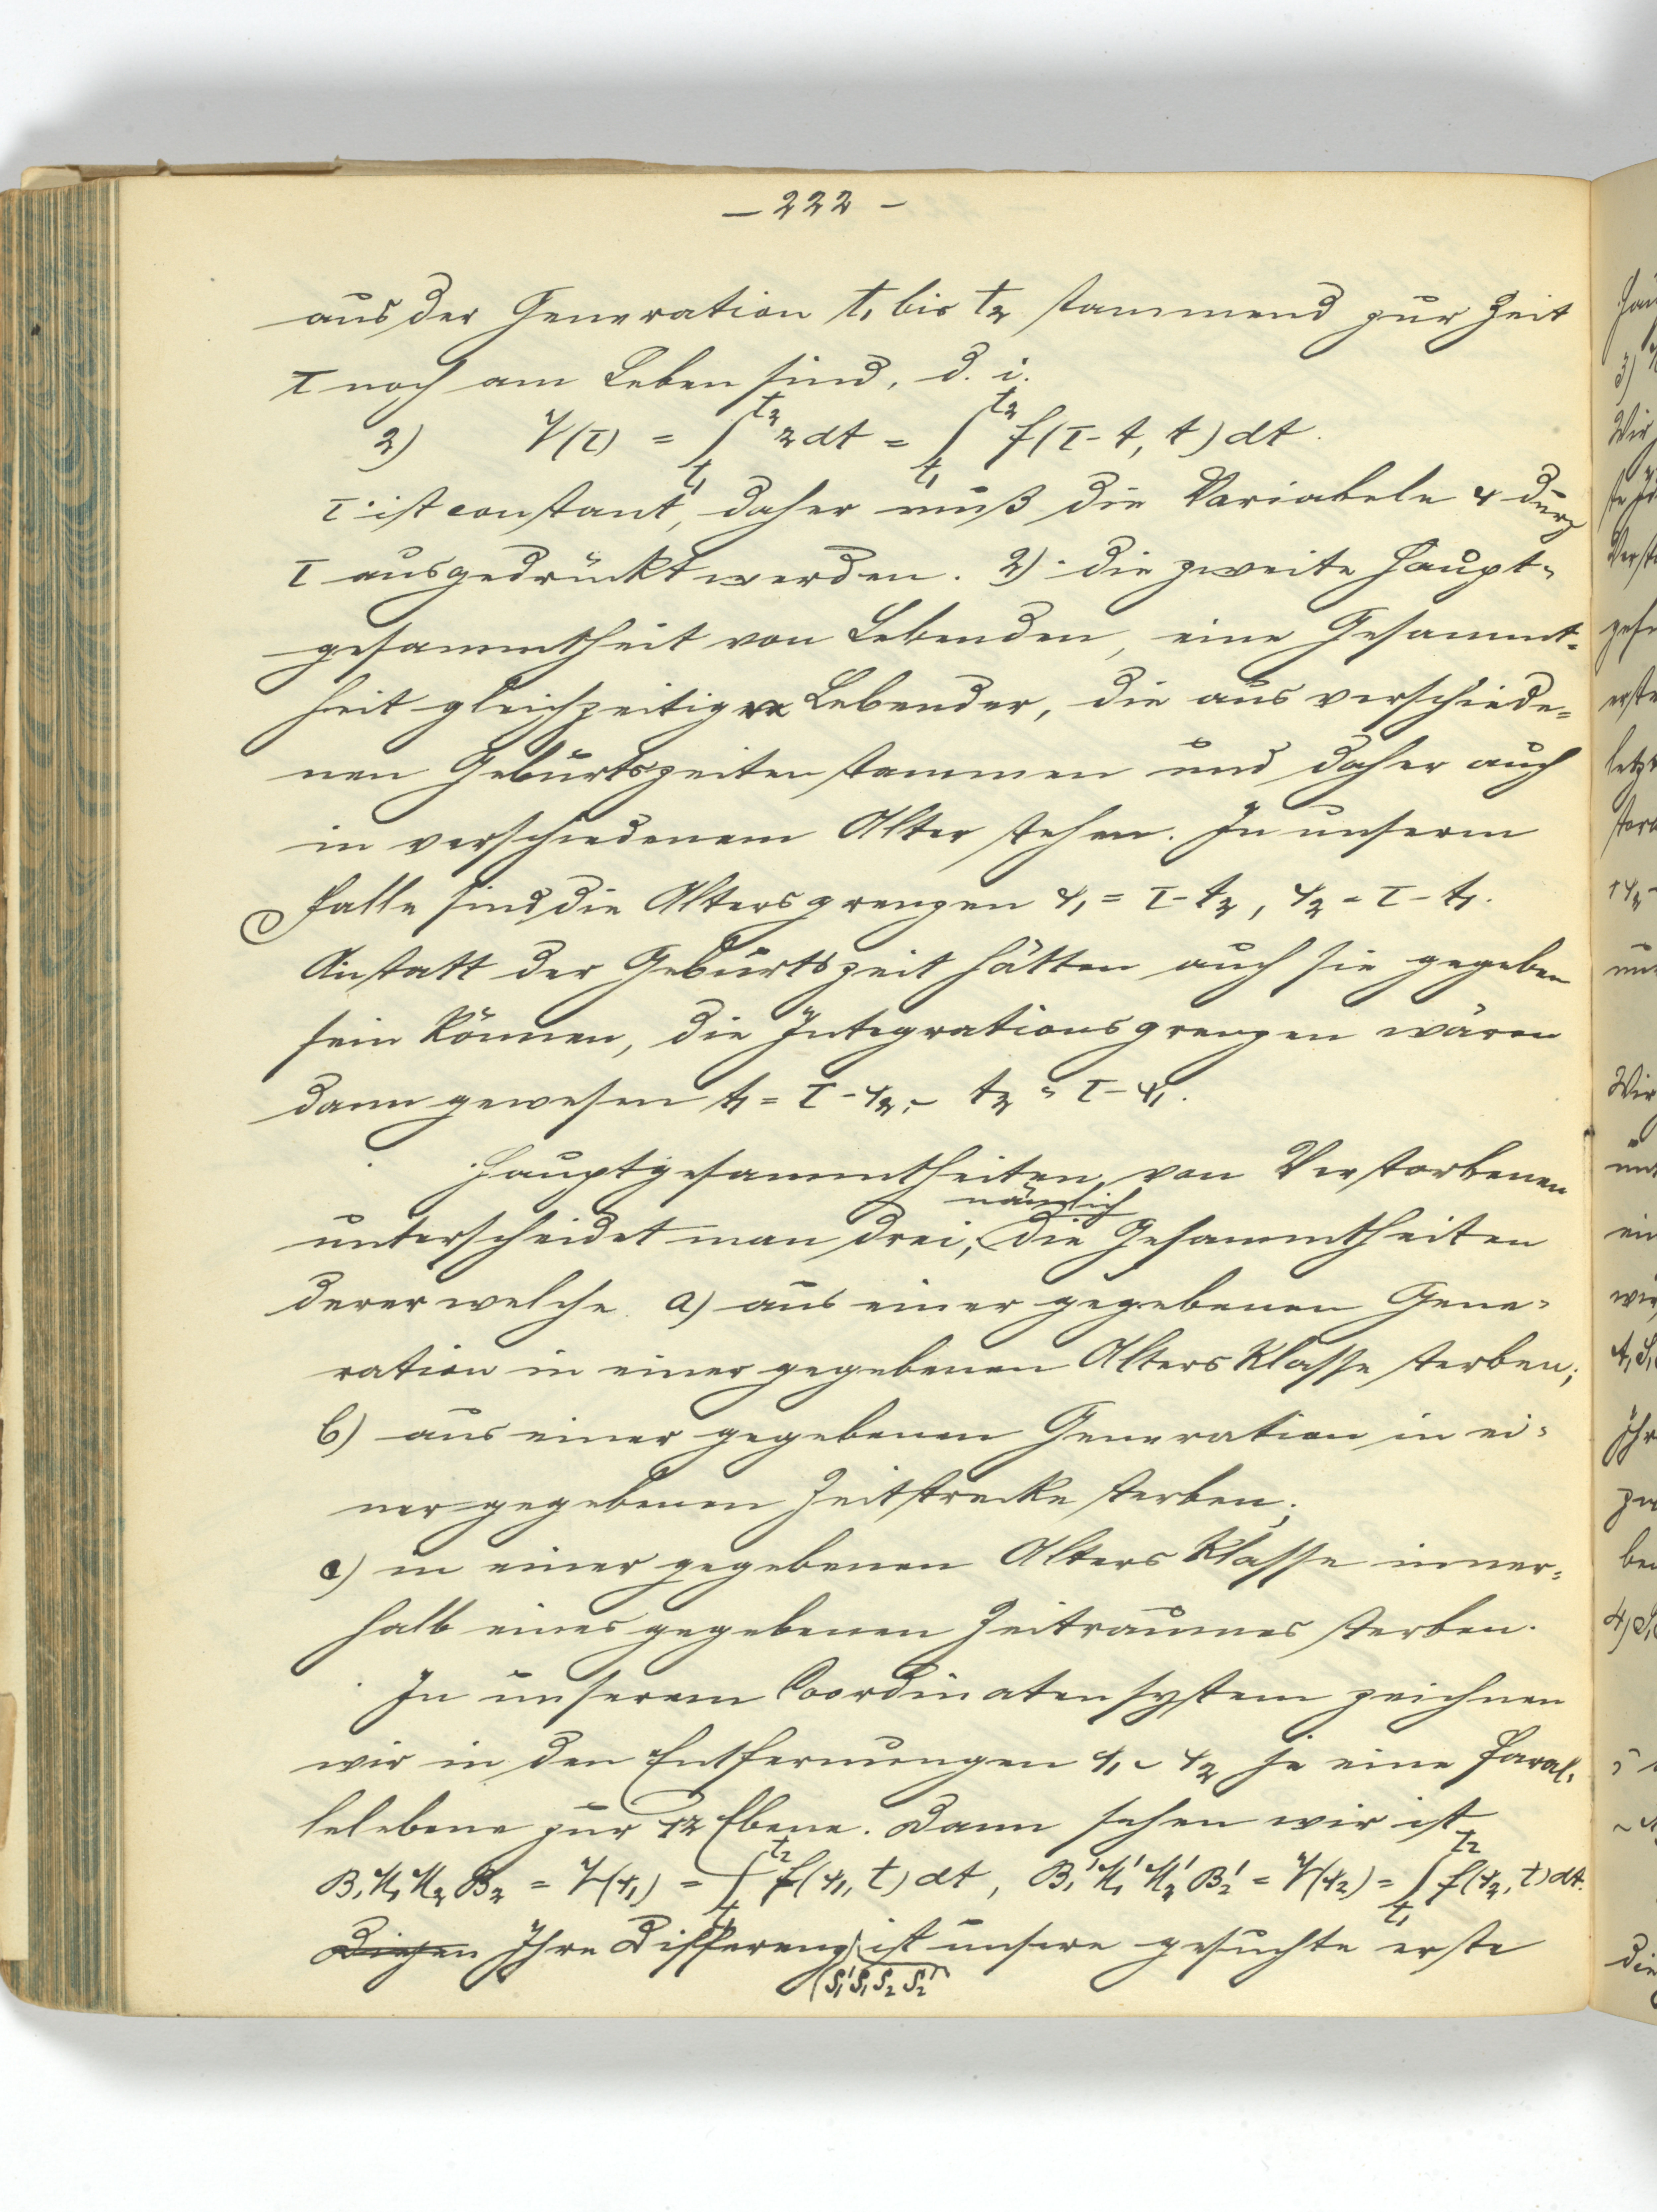 — 222 —
aus der Generation t₁ bis t₂ stammend zur Zeit
τ noch am Leben sind, d. i.
2) V(τ) = ∫_{t₁}^{t₂} z dt = ∫_{t₁}^{t₂} f(τ - t, t) dt.
τ ist constant, daher muß die Variabele x durch
τ ausgedrückt werden. 2) die zweite Haupt-
gesammtheit von Lebenden, eine Gesammt-
heit gleichzeitig Lebender, die aus verschiede-
nen Geburtszeiten stammen und daher auch
in verschiedenem Alter stehen. In unserm
Falle sind die Altersgrenzen x₁ = τ - t₂, x₂ = τ - t₁.
Anstatt der Geburtszeit hätten auch sie gegeben
sein können, die Integrationsgrenzen wären
dann gewesen t₁ = τ - x₂, t₂ = τ - x₁.
Hauptgesammtheiten von Verstorbenen
unterscheidet man drei, nämlich die Gesammtheiten
derer welche a) aus einer gegebenen Gene-
ration in einer gegebenen Altersklasse sterben;
b) aus einer gegebenen Generation in ei-
ner gegebenen Zeitstrecke sterben;
c) in einer gegebenen Altersklasse inner-
halb eines gegebenen Zeitraumes sterben.
In unserem Coordinatensystem zeichnen
wir in den Entfernungen x₁ u x₂ je eine Paral-
lelebene zur tz Ebene. Dann sehen wir ist
B₁N₁N₂B₂ = V(x₁) = ∫_{t₁}^{t₂} f(x₁, t) dt, B₁'N₁'N₂'B₂' = V(x₂) = ∫_{t₁}^{t₂} f(x₂, t) dt.
Diesen Ihre Differenz (S₁'S₁S₂S₂') ist unsere gesuchte erste